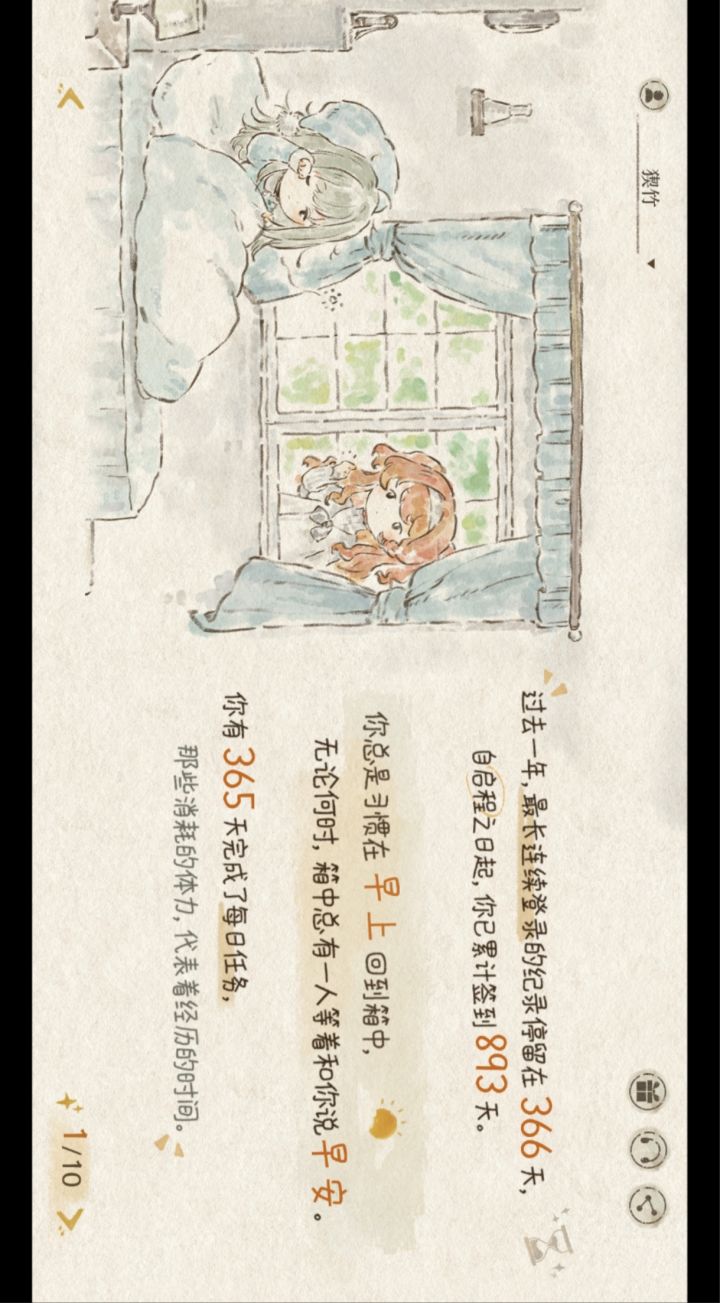 猰竹
过去一年,最长连续登录的纪录停留在366天,
自启程之日起,你已累计签到893天。
你总是习惯在早上回到箱中,
无论何时,箱中总有一人等着和你说早安。
你有365天完成了每日任务,
那些消耗的体力,代表着经历的时间。
1/10